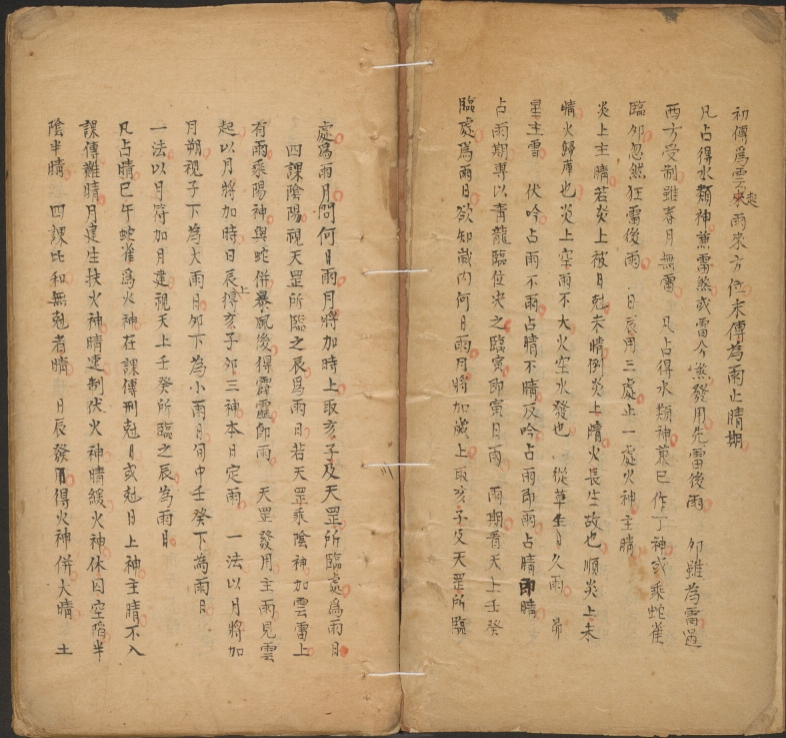 初傳為雲起雨來方位末傳為雨止晴期
凡占得水類神兼雷煞或雷公煞發用先雷後雨 卯雖為雷過
西方受制雖春月無雷 凡占得水類神兼巳作丁神或乘蛇雀
臨卯忽然狂雷後雨 日辰用三處止一處火神主晴
炎上主晴若炎上被日尅未晴例炎上晴火長生故也順炎上未
晴火歸庫也炎上空雨不大火空水發也 從革生日久雨 昴
星主雪 伏吟占雨不雨占晴不晴反吟占雨即雨占晴即晴
占雨期專以青龍臨位決之臨寅即寅日雨 雨期看天上壬癸
臨處為雨日欲知歲內何日雨月將加歲上取亥子及天罡所臨
處為雨月問何日雨月將加時上取亥子及天罡所臨處為雨日
四課陰陽視天罡所臨之辰為雨日若天罡乘陰神加雲雷上
有雨乘陽神與蛇併暴風後得霹靂即雨 天罡發用主雨見雲
起以月將加時日辰上得亥子卯三神本日定雨 一法以月將加
月朔視子下為大雨月卯下為小雨月旬中壬癸下為雨日
一法以月符加月建視天上壬癸所臨之辰為雨日
凡占晴巳午蛇雀為火神在課傳刑尅日或尅日上神主晴不入
課傳難晴月建生扶火神晴速制伏火神晴緩火神休囚空陷半
陰半晴 四課比和無尅者晴 日辰發用得火神併大晴 土